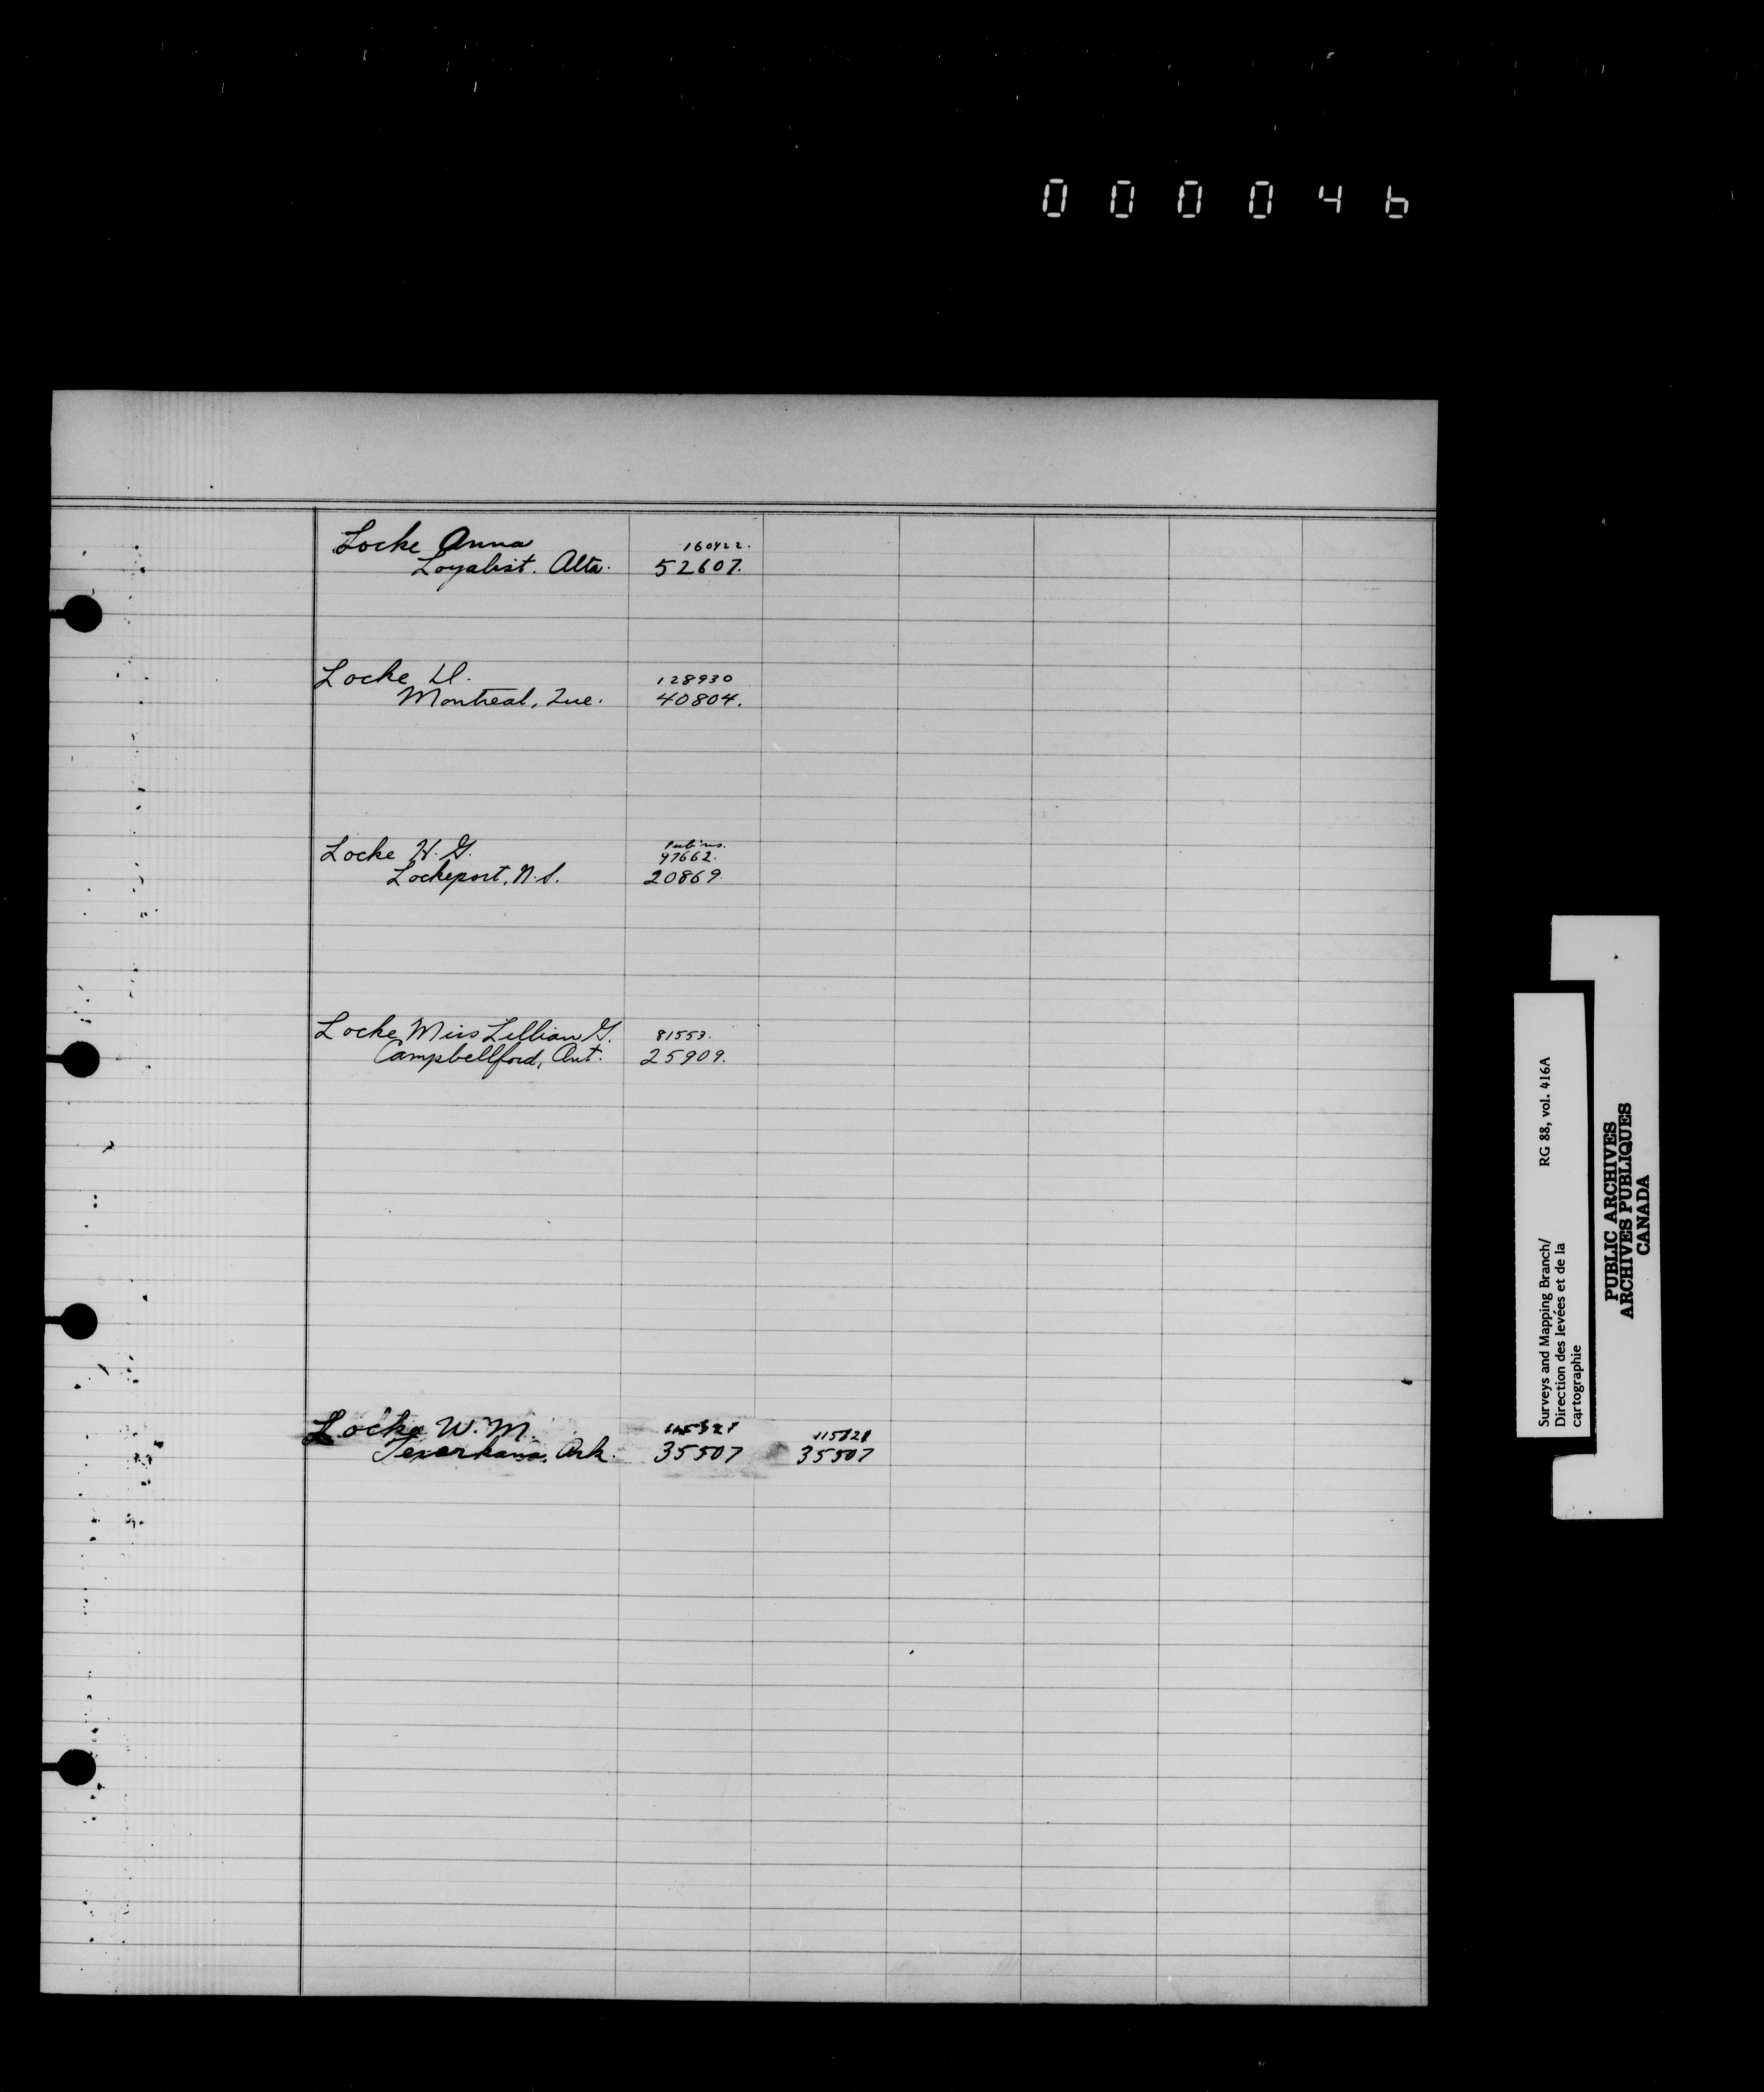 000046
Locke Anna 160422.
Loyalist. Alta. 52607.
Locke D. 128930
Montreal, Que. 40804.
Locke H. G.
97662.
Lockeport, N.S. 20869.
Locke Miss Lillian G. 81553.
Campbellford, Ont. 25909.
Locke W. M.
Texarkana, Ark. 35507 35507
Surveys and Mapping Branch/ RG 88, vol. 416A
Direction des levées et de la
cartographie
PUBLIC ARCHIVES
ARCHIVES PUBLIQUES
CANADA